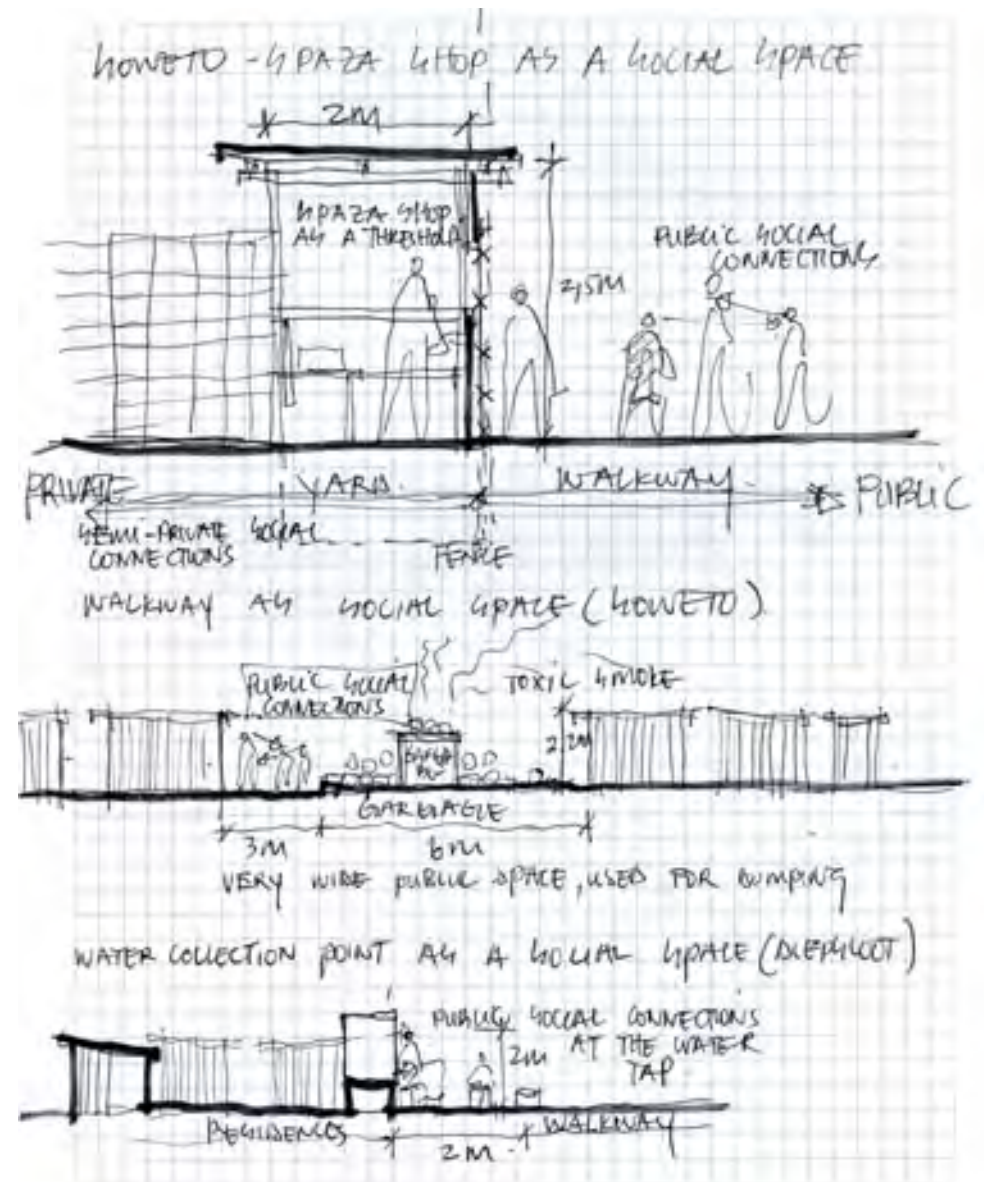 SOWETO - SPAZA SHOP AS A SOCIAL SPACE
2M
SPAZA SHOP
AS A THRESHOLD
PUBLIC SOCIAL
CONNECTIONS
2,5M
PRIVATE
YARD
WALKWAY
PUBLIC
SEMI-PRIVATE SOCIAL
CONNECTIONS
FENCE
WALKWAY AS SOCIAL SPACE (SOWETO)
PUBLIC SOCIAL
CONNECTIONS
TOXIC SMOKE
GARBAGE
3M
6M
VERY WIDE PUBLIC SPACE, USED FOR DUMPING
WATER COLLECTION POINT AS A SOCIAL SPACE (DIEPSLOOT)
PUBLIC SOCIAL CONNECTIONS
2M
AT THE WATER
TAP
RESIDENCES
WALKWAY
2M